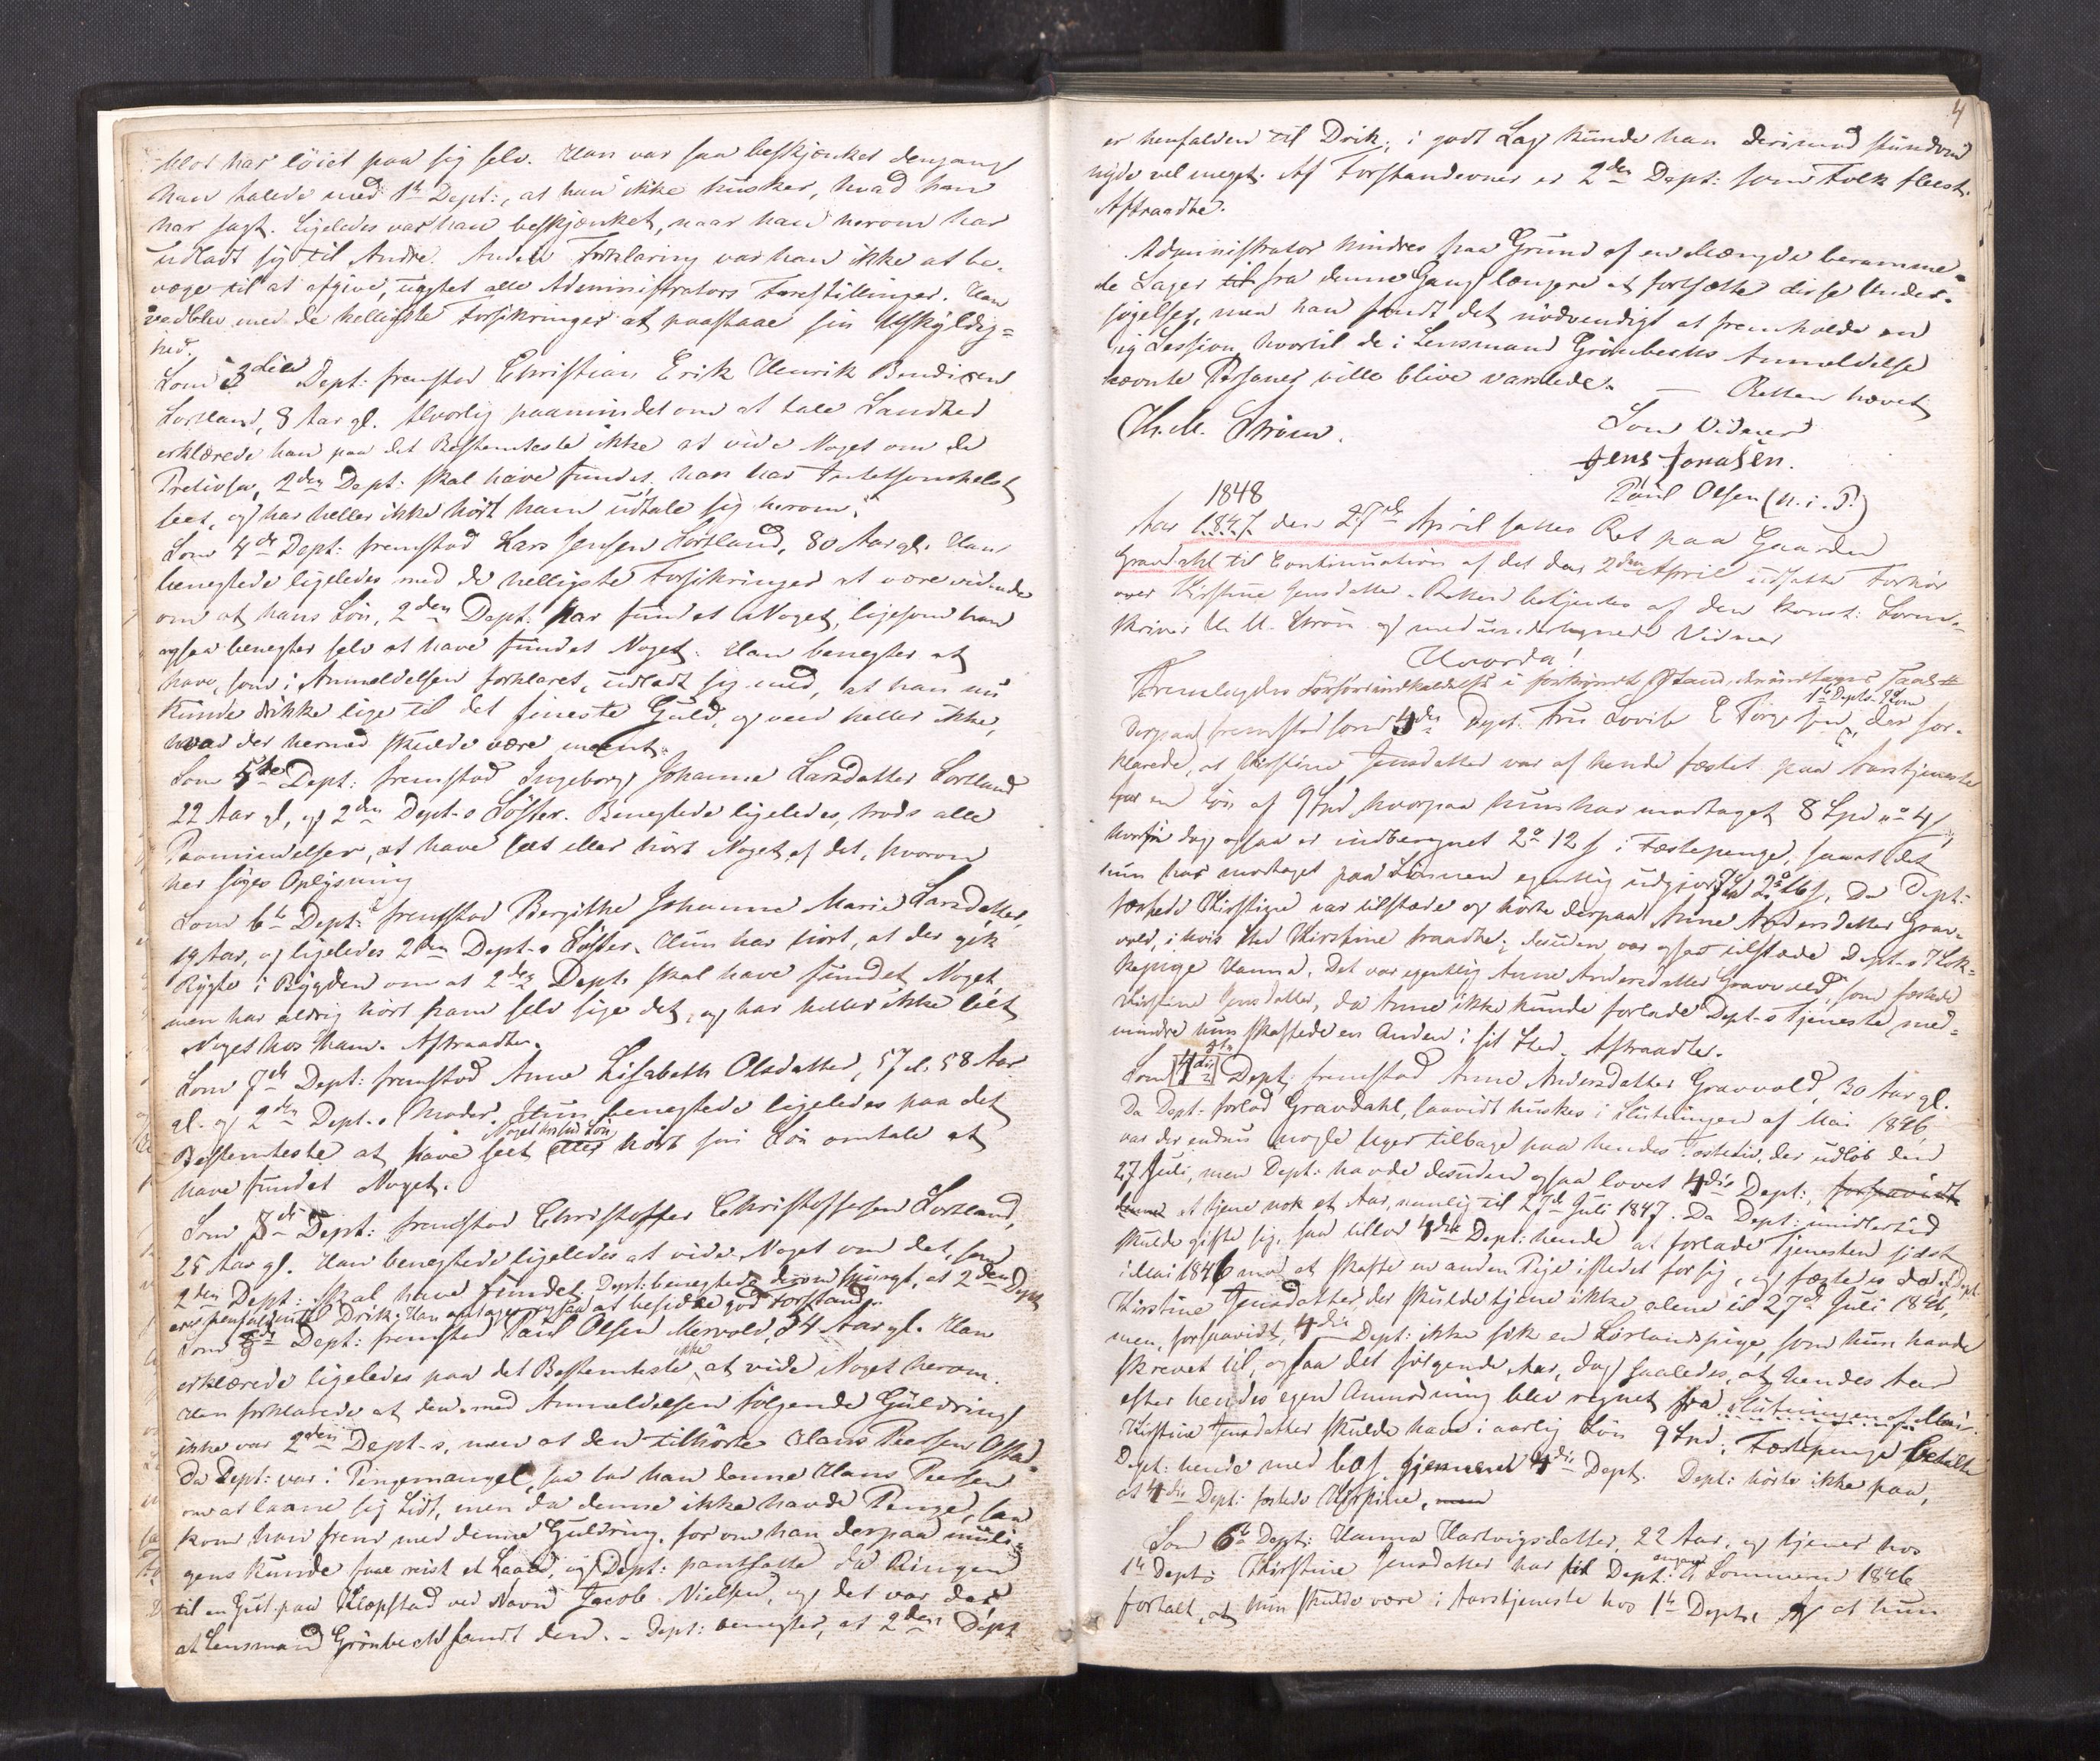 blot har løiet paa sig selv. Han var saa beskjænket dengang
han talede med 1ste Dept:, at han ikke husker, hvad han
har sagt. Ligeledes var han beskjænket, naar han herom har
udladt sig til Andre. Anden Forklaring var han ikke at be-
væge til at afgive, uagtet alle Administrators Forestillinger. Han
vedblev med de helligste Forsikringer at paastaae sin Uskyldig=
hed.
Som 3die Dept: fremstod Christian Erik Henrik Bendixen
Sortland, 8 Aar gl. Alvorlig paamindet om at tale Sandhed
erklærede han paa det Bestemteste ikke at vide Noget om de
Pretiosa, 2den Dept: skal have fundet, han har Intetsomhelst
seet, og har heller ikke hørt ham udtale sig herom.
Som 4de Dept: fremstod Lars Jensen Sortland, 80 Aar gl. Han
benegtede ligeledes med de helligste Forsikringer at være vidende
om at hans Søn, 2den Dept: har fundet Noget, ligesom han
ogsaa benegter selv at have fundet Noget. Han benegter at
have, som i Anmeldelsen forklaret, udladt sig med, at han nu
kunde drikke lige til det fineste Guld, og veed heller ikke,
hvad der hermed skulde være meent.
Som 5te Dept: fremstod Ingeborg Johanna Larsdatter Sortland
22 Aar gl, og 2den Dept-s Søster. Benegtede ligeledes, trods alle
Paamindelser, at have seet eller hørt Noget af det, hvorom
her søges Oplysning
Som 6te Dept: fremstod Bergithe Johanna Marie Larsdatter,
19 Aar, og ligeledes 2den Dept-s Søster. Hun har hørt, at der gik
Rygte i Bygden om at 2den Dept. skal have fundet Noget,
men har aldrig hørt ham selv sige det, og har heller ikke seet
Noget hos ham. Aftraadte.
Som 7de Dept: fremstod Anne Lisabeth Olsdatter, 57 el. 58 Aar
gl. og 2den Dept-s Moder. Hun benegtede ligeledes paa det
Bestemteste at have seet Noget hos sin Søn eller hørt sin Søn omtale at
have fundet Noget.
Som 8de Dept: fremstod Christoffer Christoffersen Sortland,
25 Aar gl. Han benegtede ligeledes at vide Noget om det, som
2den Dept: skal have fundet. Dept: benegtede derom spurgt, at 2den Dept
er henfalden til Drik. Han antages ogsaa at besidde god Forstand.
Som 9de Dept: fremstod Paul Olsen Mervold, 34 Aar gl. Han
erklærede ligeledes paa det Bestemteste ikke at vide Noget herom.
Han forklarede at den med Anmeldelsen følgende Guldring
ikke var 2den Dept-s, men at den tilhørte Hans Peersen
Da Dept: var i Pengemangel, saa bad han denne Hans Peersen
om at laane sig Lidt, men da denne ikke havde Penge, saa
kom han frem med denne Guldring, for om han derpaa muli-
gens kunde faae reist et Laan, og Dept: pantsatte da Ringen
til en Gut paa Klæpstad ved Navn Jacob Nielsen, og det var der
at Lensmand Grønbeck fandt den. - Dept: benegter, at 2den Dept
4
er henfalden til Drik; i godt Lag kunde han derimod stundom
nyde vel meget. Af Forstandevner er 2den Dept: som Folk fleest.
Aftraadte.
Administrator hindres paa Grund af en Mængde beramme-
de Sager til fra denne Gang længere at fortsætte disse Under-
søgelser, men han fandt det nødvendigt at fremholde en
ny Session, hvortil de i Lensmand Grønbecks Anmeldelse
nævnte Personer ville blive varslede. — Retten hævet
H. M. Strøm.
Som Vidner
Jens Jonasen.
Paul Olsen (m. i. P.)
1848
Aar 1847 den 27de April sattes Ret paa Gaarden
Gravdahl til Continuation af det den 2den April udsatte Forhør
over Kirstine Jensdatter. Retten betjentes af den Const: Soren-
skriver H. M. Strøm og med undertegnede Vidner
Hvorda!
Fremlagdes Forhørsindkaldelse i forkyndt Stand,
Derpaa fremstod som 4de Dept. Fru Lovise E Jørgensen, der for-
klarede, at Kirstine Jensdatter var af hende fæstet paa Aarstjeneste
for en Løn af 9 Spd, hvorpaa hun har modtaget 8 Spd
hvori dog ogsaa er indberegnet 2 12 s i Fæstepenge, saa at det
hun har modtaget paa Lønnen egentlig udgjør Da Dept:
fæstede Kirstine var tilstæde og hørte derpaa Anne Andersdatter Grav-
vold, i hvis Sted Kirstine traadte; desuden var ogsaa tilstæde Dept-s Kok-
kepige Hanna. Det var egentlig Anne Andersdatter Gravvold, som fæstede
Kirstine Jensdatter, da Anne ikke kunde forlade Dept-s Tjeneste med-
mindre hun skaffede en Anden i sit Sted. Aftraadte.
Som 4die Dept: fremstod Anne Andersdatter Gravvold, 30 Aar gl.
Da Dept: forlod Gravdahl, saavidt huskes i Slutningen af Mai 1846,
var der endnu nogle Uger tilbage paa hendes Fæstetid, der udløb den
27 Juli, men Dept: havde desuden ogsaa lovet 4die Dept:, forsaavidt
at tjene nok et Aar, nemlig til 27de Juli 1847. Da Dept: imidlertid
skulde gifte sig, saa tillod 4die Dept: hende at forlade Tjenesten sidst
i Mai 1846 mod at skaffe en anden Pige istedet for sig, og fæstedes da af Dept
Kirstine Jensdatter, der skulde tjene ikke alene til 27de Juli 1846,
men, forsaavidt, 4die Dept: ikke fik en Sørlandspige, som hun havde
skrevet til, ogsaa det følgende Aar, dog saaledes, at hendes Aar
efter hendes egen Anmodning blev regnet fra Slutningen af Mai.
Kirstine Jensdatter skulde have i aarlig Løn 9 Spd; Fæstepenge betalte
Dept: hende med 60 s. gjennem 4die Dept. Dept: hørte ikke paa,
at 4die Dept: fæstede Kirstine, men
Som 6te Dept: Hanna Hartvigsdatter, 22 Aar, og tjener hos
1ste Dept: Kirstine Jensdatter har til Dept: engang i Sommeren 1846
fortalt, at hun skulde være i Aarstjeneste hos 1ste Dept: og at hun